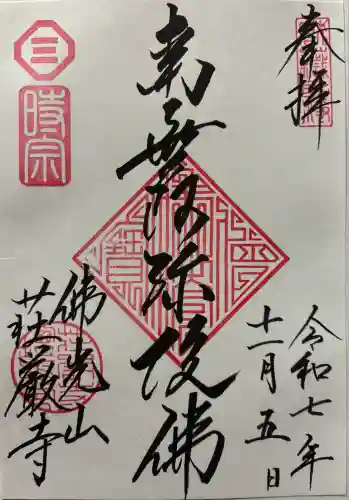 奉拝
令和七年
十一月五日
南無阿弥陀佛
佛光山
荘厳寺
三
時宗